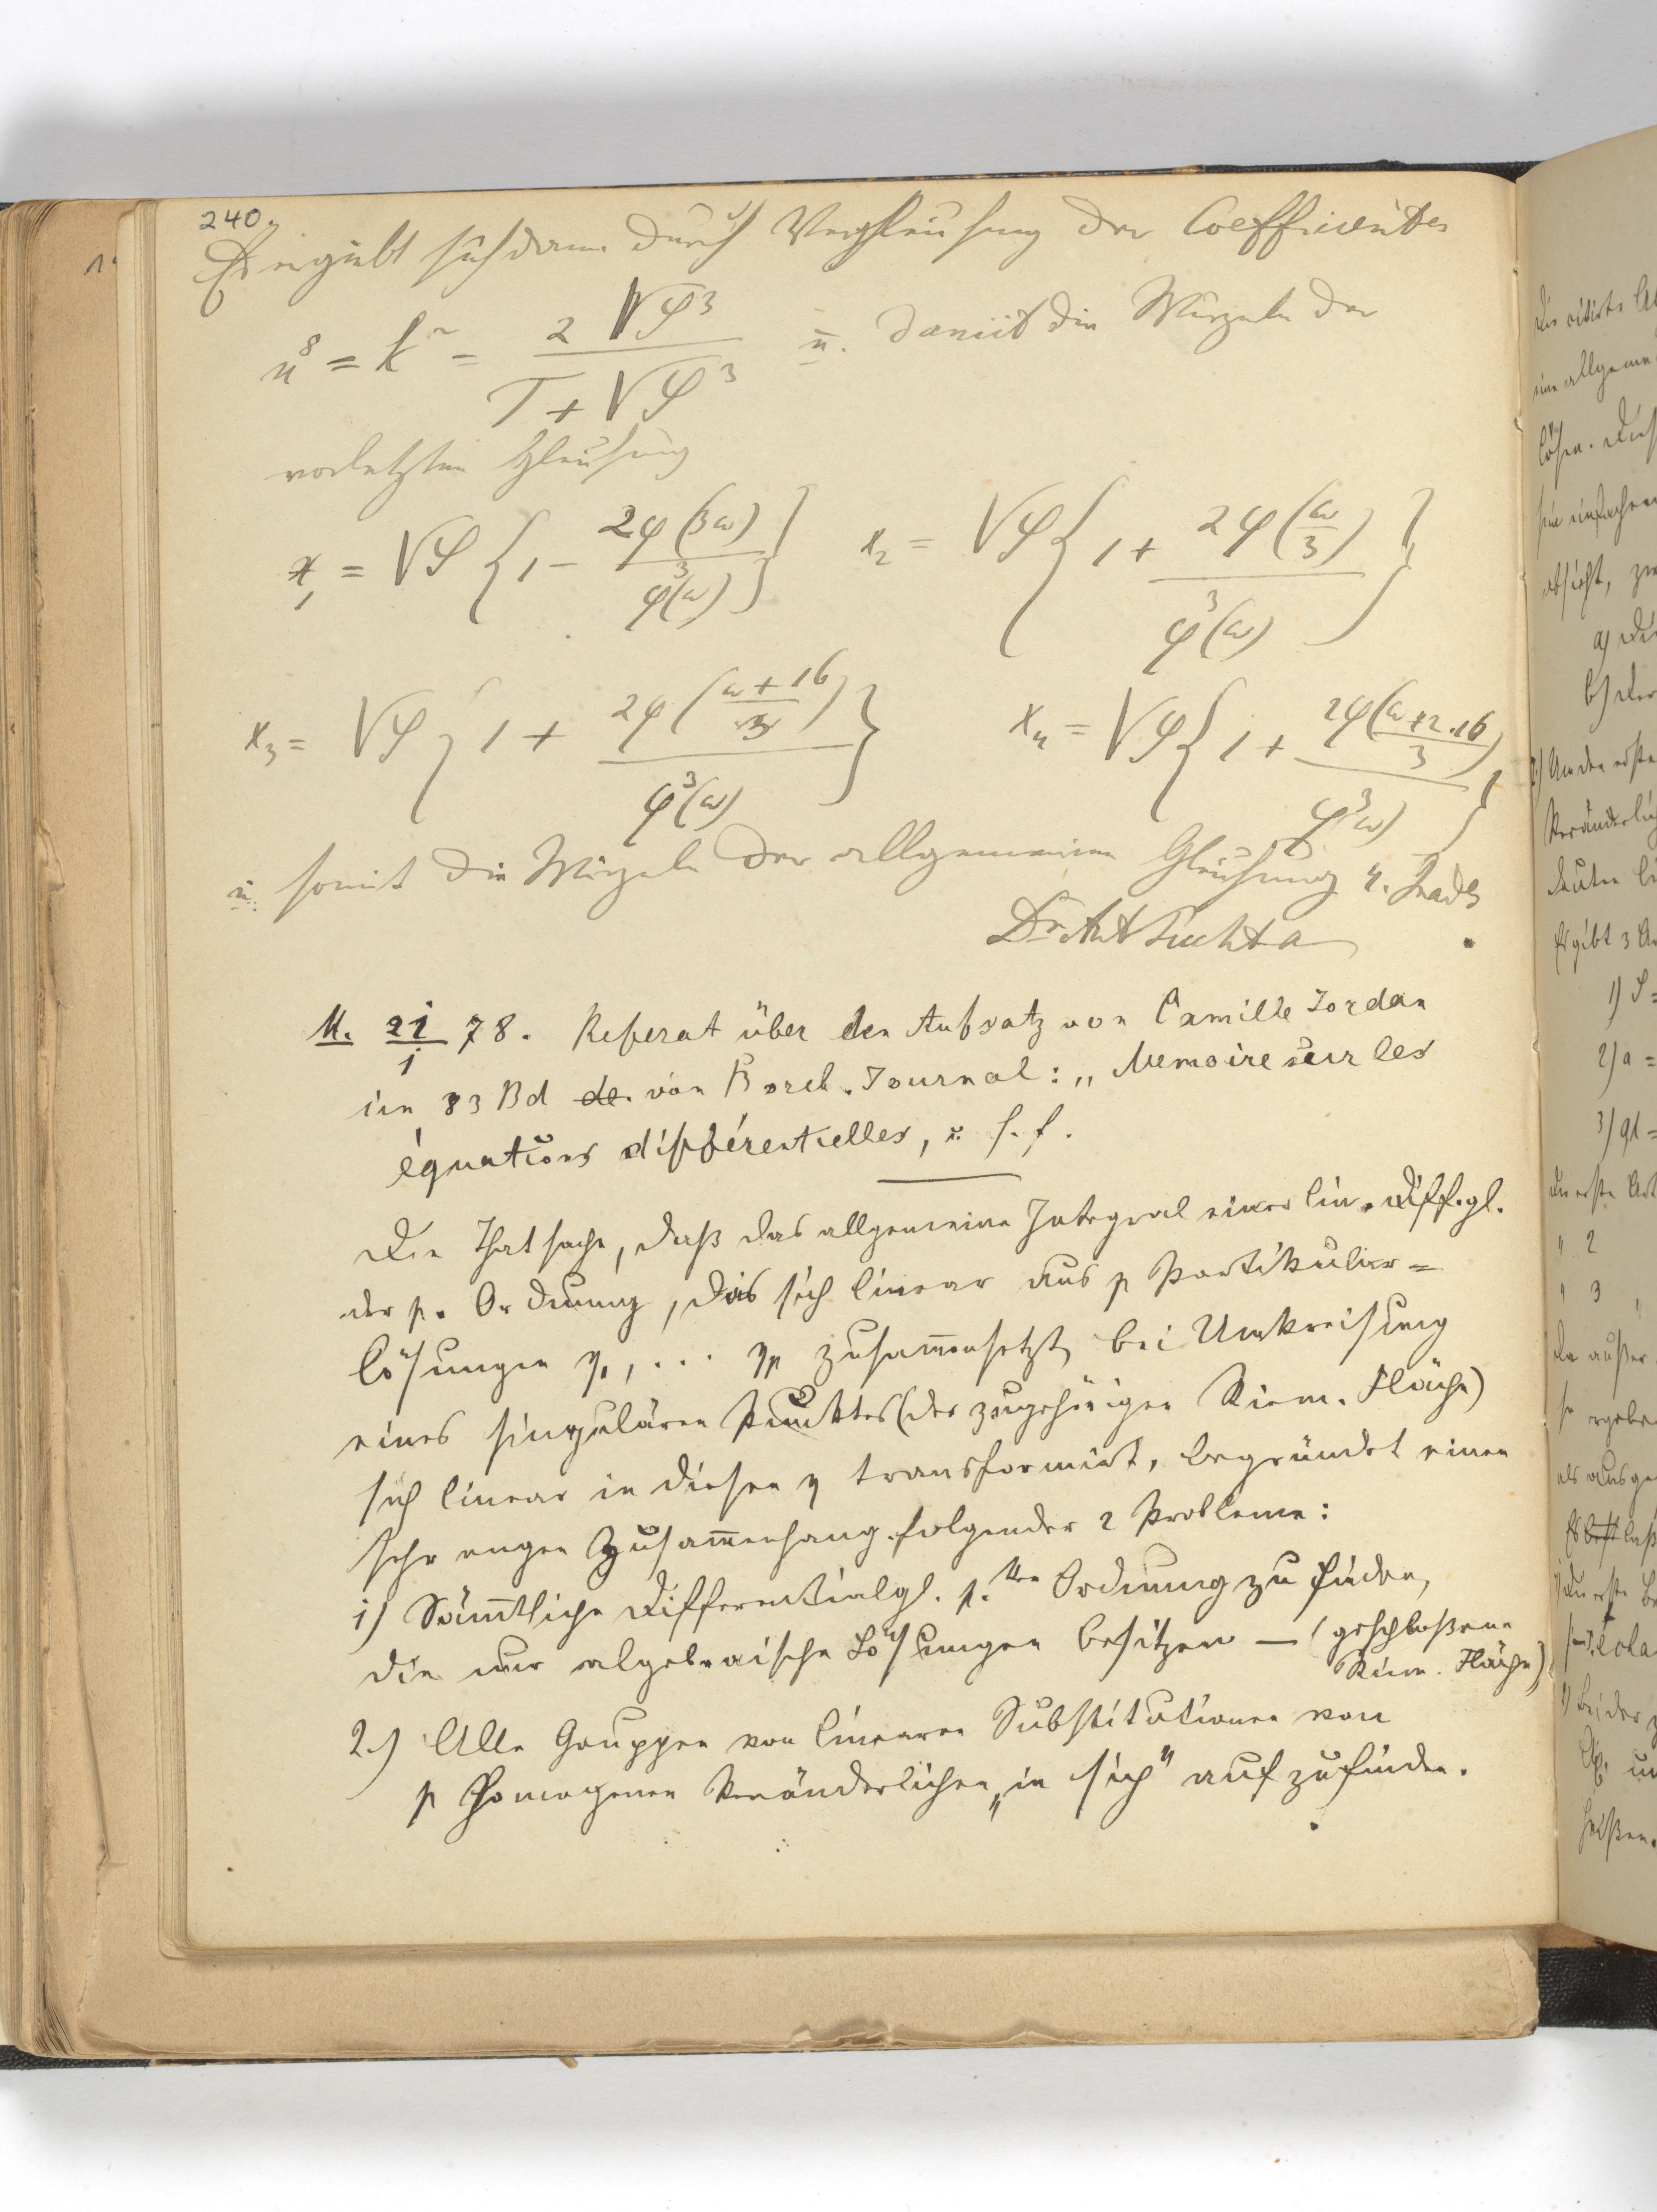 240.
Es ergiebt sich dann durch Vergleichung der Coefficienten
u⁸ = k² = 2√φ³ / (T + √φ³) u. damit die Wurzeln der
vorletzten Gleichung
x₁ = √φ { 1 − 2φ(3ω) / φ³(ω) } x₂ = √φ { 1 + 2φ(ω/3) / φ³(ω) }
x₃ = √φ { 1 + 2φ((ω+16)/3) / φ³(ω) } x₄ = √φ { 1 + 2φ((ω+2.16)/3) / φ³(ω) }
u. somit die Wurzeln der allgemeinen Gleichung 4. Grades
Dr Ant Puchta
M. 21/1 78. Referat über den Aufsatz von Camille Jordan
im 83 Bd de. von Borch. Journal: „Memoire sur les
équations différentielles, u. s. f.
Die Thatsache, daß das allgemeine Integral einer lin. Diff.gl.
der p. Ordnung, das sich linear aus p Partikulär=
lösungen y₁, ... yp zusam̅ensetzt, bei Umkreisung
eines singulären Punktes (der zugehörigen Riem. Fläche)
sich linear in diesen y transformirt, begründet einen
sehr engen Zusam̅enhang folgender 2 Probleme:
1) Säm̅tliche Differentialgl. p.ten Ordnung zu finden,
die nur algebraische Lösungen besitzen — (geschloßene
Riem. Fläche)
2.) Alle Gruppen von linearen Substitutionen von
p homogenen Veränderlichen „in sich" aufzufinden.